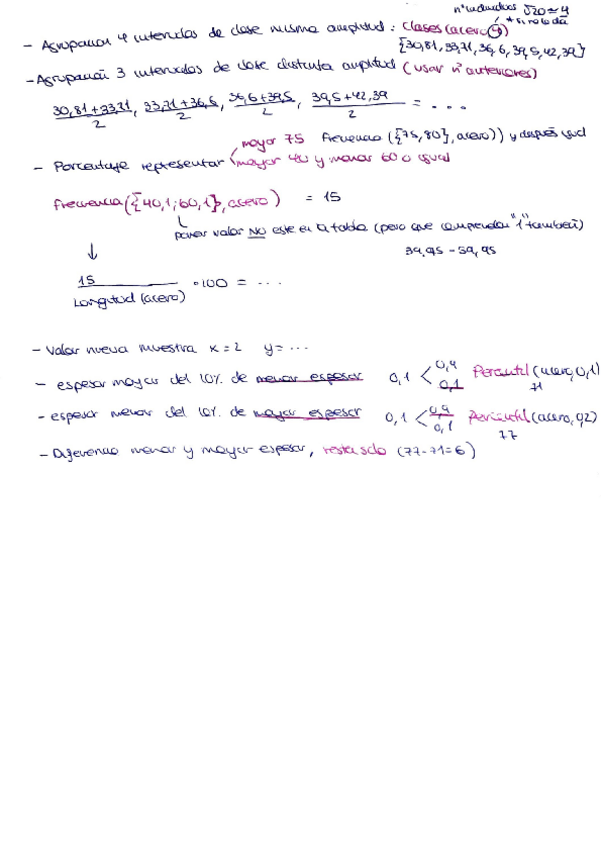 nº individuos √20 ≃ 4
- Agrupación 4 intervalos de clase misma amplitud: Clases(acero, 4) * si no lo da
{30,81, 33,71, 36,6, 39,5, 42,39}
- Agrupación 3 intervalos de clase distinta amplitud (usar nº anteriores)
30,81+33,71/2, 33,71+36,6/2, 36,6+39,5/2, 39,5+42,39/2 = ...
mayor 75 Frecuencia ({75,80}, acero)) y después igual
- Porcentaje representar < mayor 40 y menor 60 o igual
Frecuencia({40,1;60,1}, acero) = 15
poner valor NO esté en la tabla (pero que comprenda "1" también)
39,95 - 59,95
15/Longitud(acero) · 100 = ...
- Valor nueva muestra x=2 y=...
- espesor mayor del 10% de menor espesor 0,1 < 0,9 0,1 Percentil(acero,0,1)
71
- espesor menor del 10% de mayor espesor 0,1 < 0,9 0,1 Percentil(acero,0,2)
77
- Diferencia menor y mayor espesor, restarlo (77-71=6)